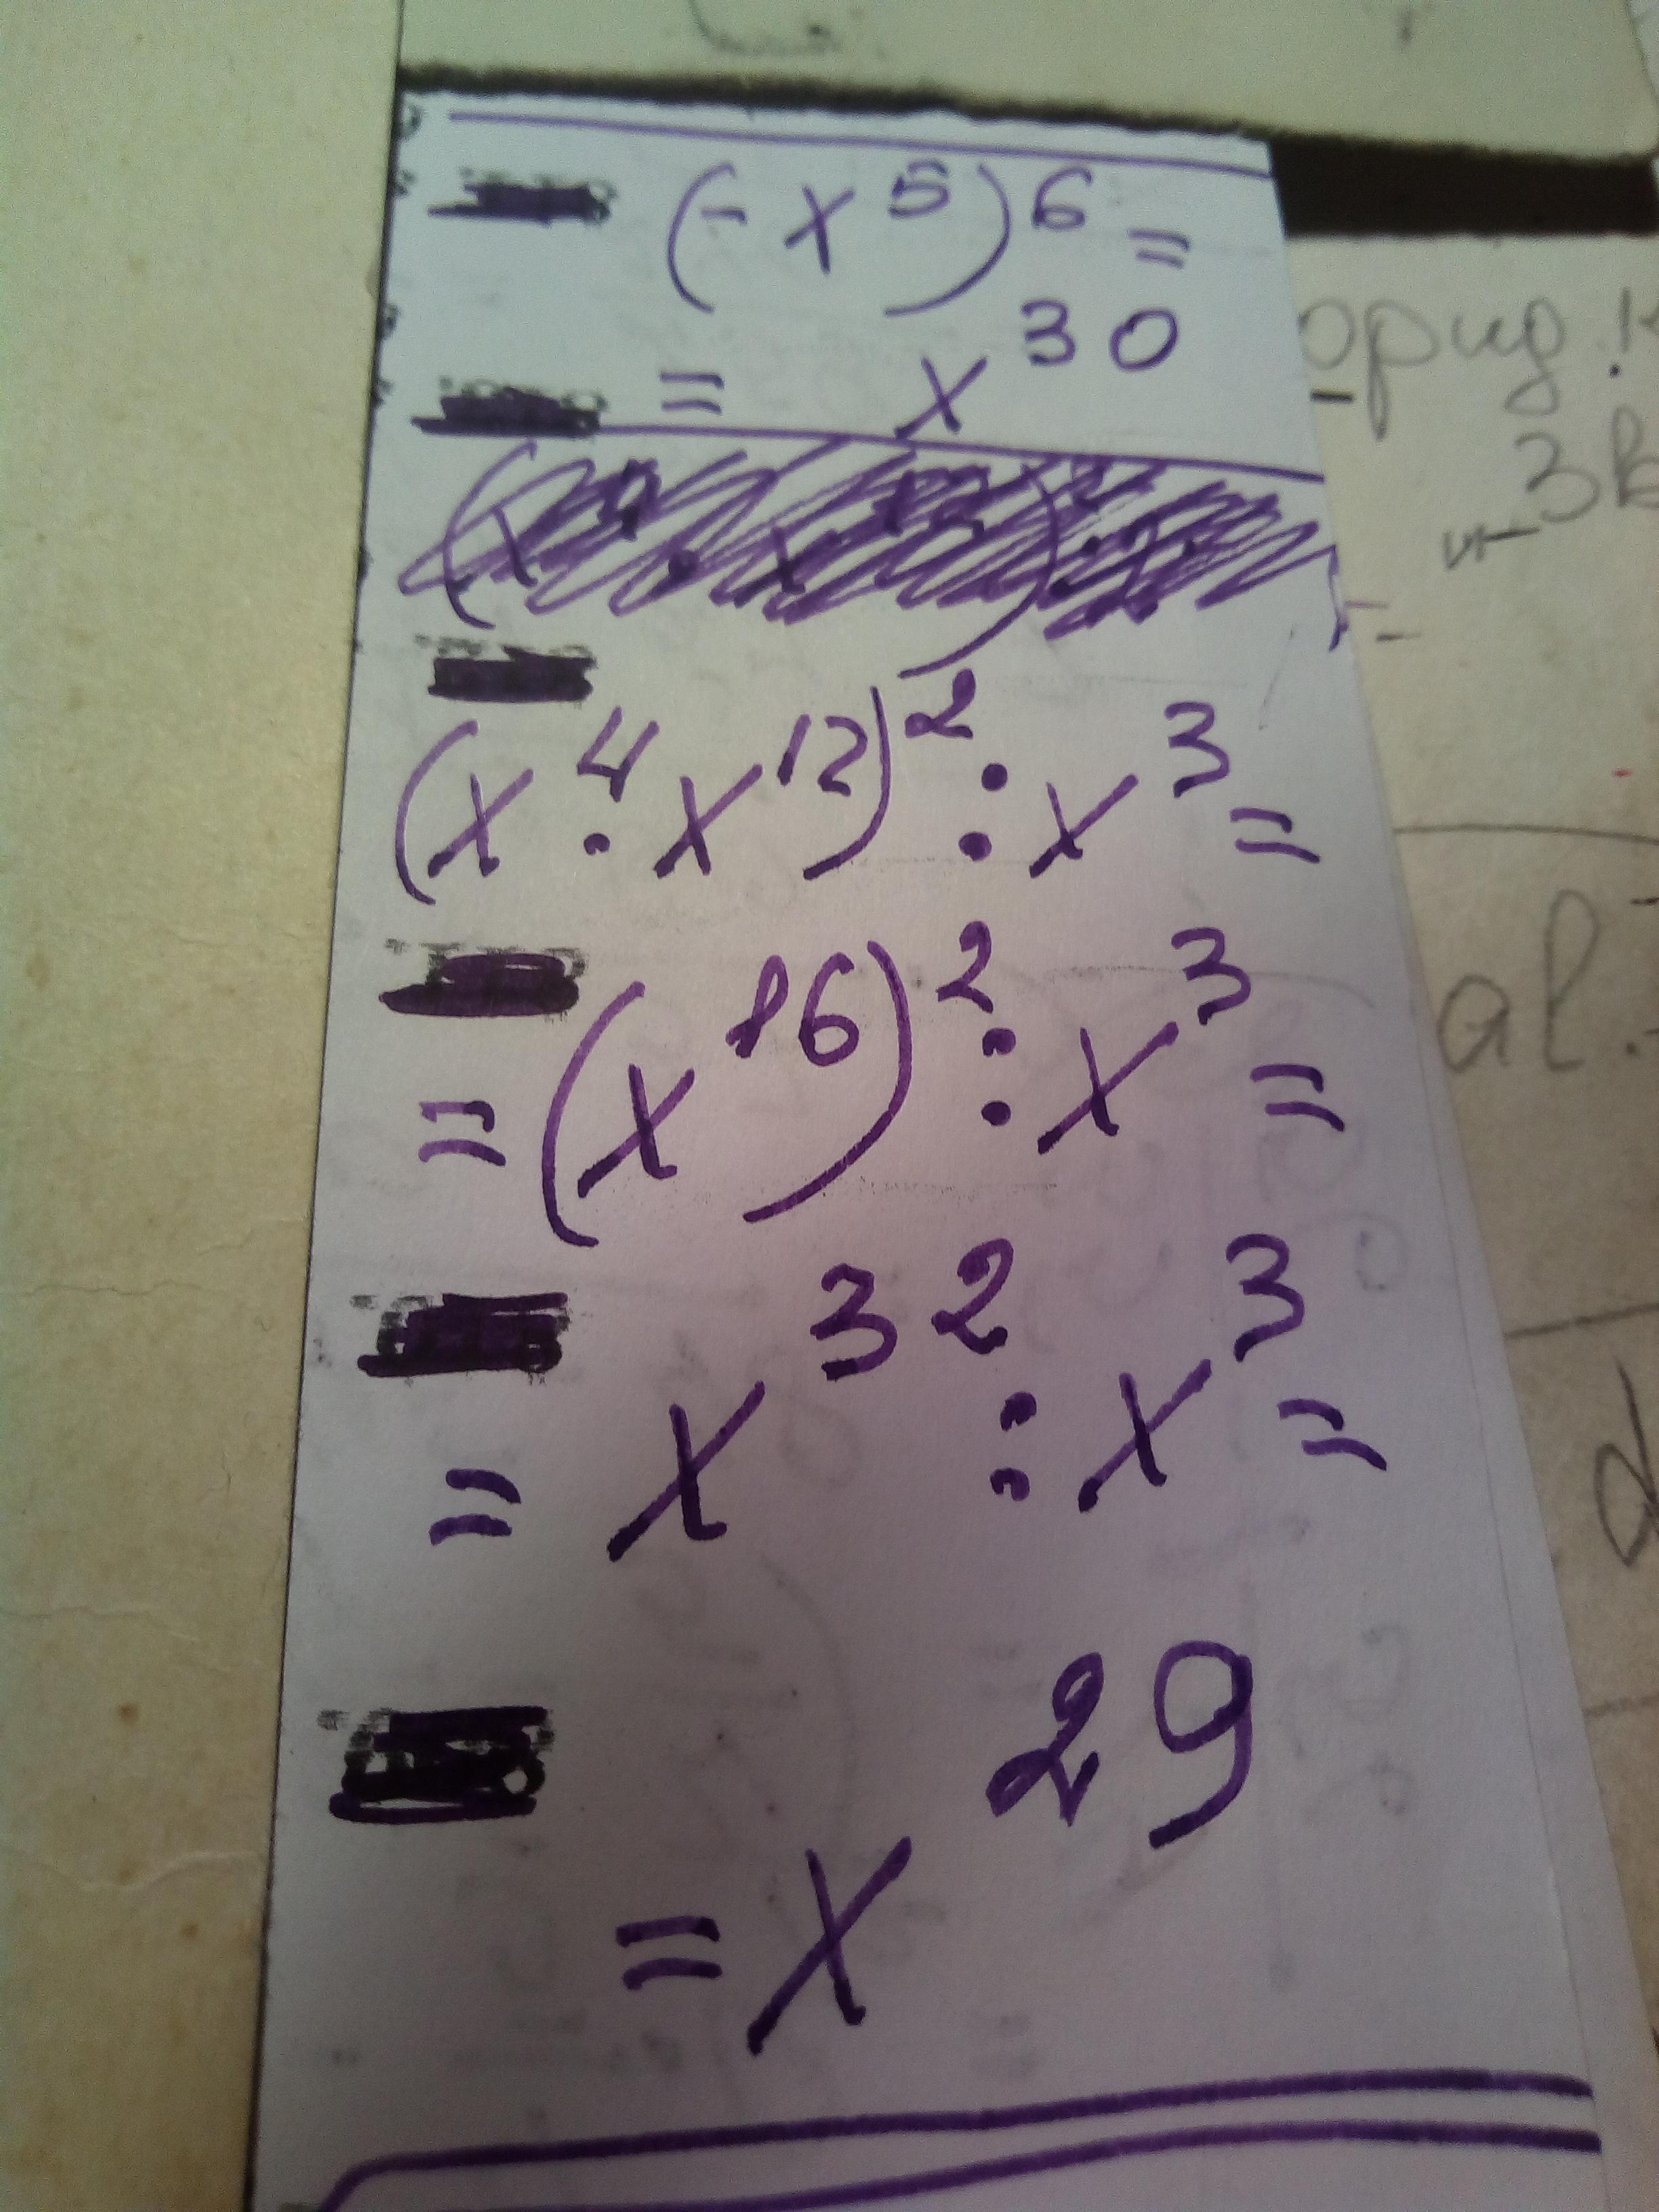 (-x⁵)⁶=
= x³⁰
(x⁴·x¹²)²:x³=
=(x¹⁶)²:x³=
= x³²:x³=
=x²⁹
орид.
зв
al.